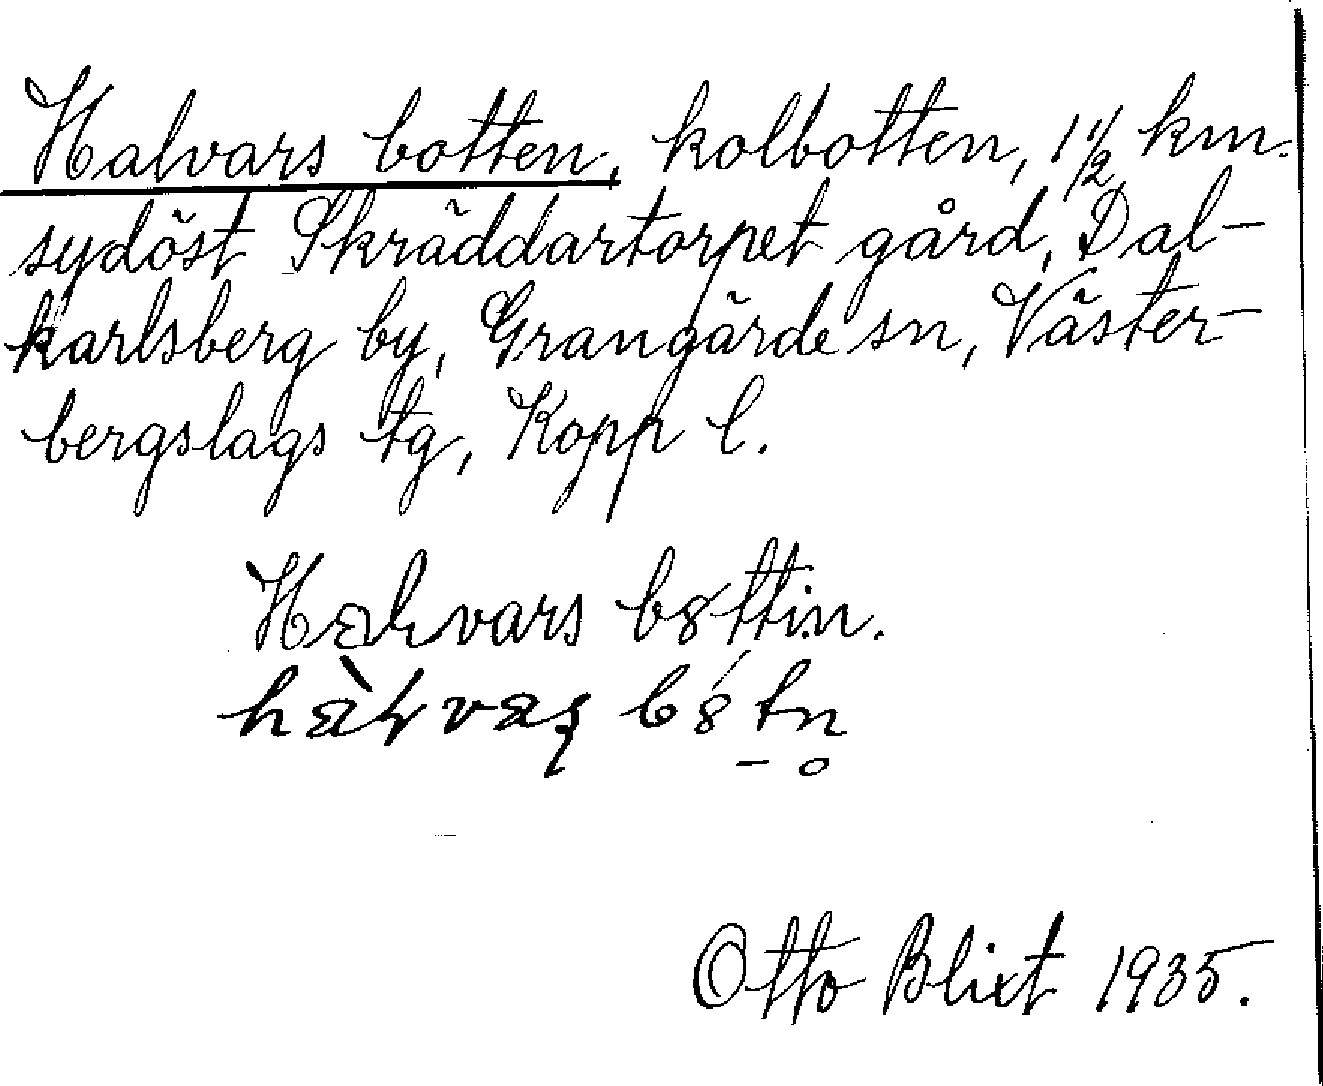 Halvars botten, kolbotten, 1 1/2 km.
sydöst Skräddartorpet gård, Dal-
karlsberg by, Grangärde sn, Väster-
bergslags tg, Kopp l.
Halvars b8ttin.
Otto Blixt 1935.